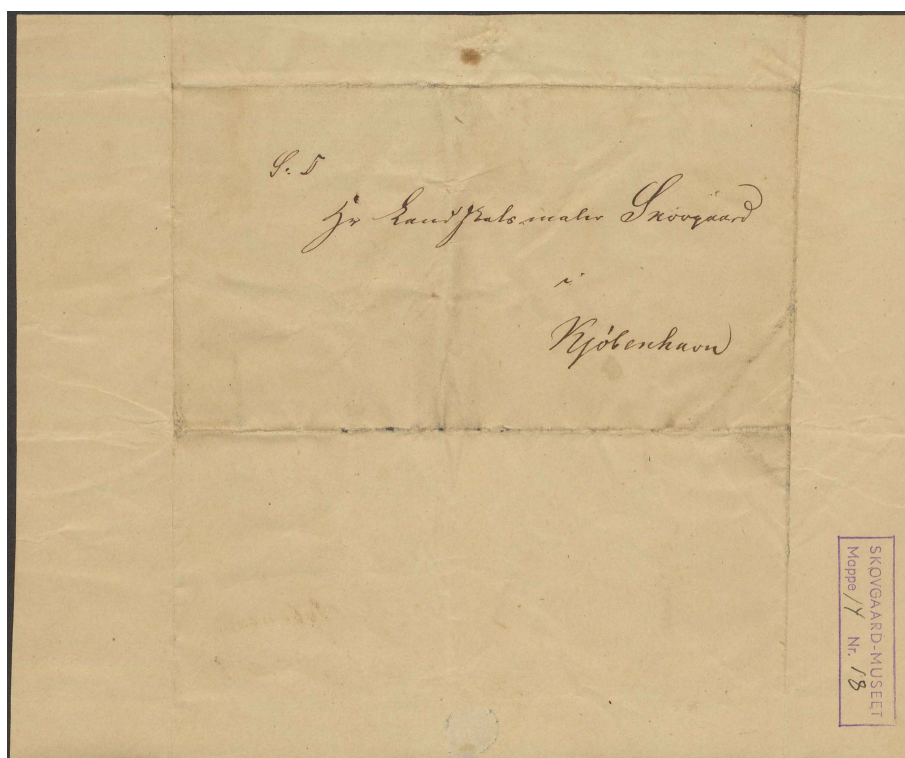 S. T
Hr Landskabsmaler Skovgaard
i
Kjöbenhavn
SKOVGAARD-MUSEET
Mappe 14 Nr. 18